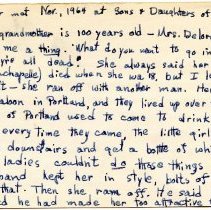 r met Nov, 1964 at Sons & Daughters of
grandmother is 100 years old - Mrs. Delor
me a thing. "What do you want to go in
y're all dead! She always said her
chapelle) died when she was, but I
t - she ran off with another man. He
aloon in Portland, and they lived up over
of Portland used to come to drink
every time they came, the little girl
downstairs and get a bottle of wh
ladies couldn't do those things
band kept her in style, bolts of
that. Then she ran off. He said
d he had made her too attractive t